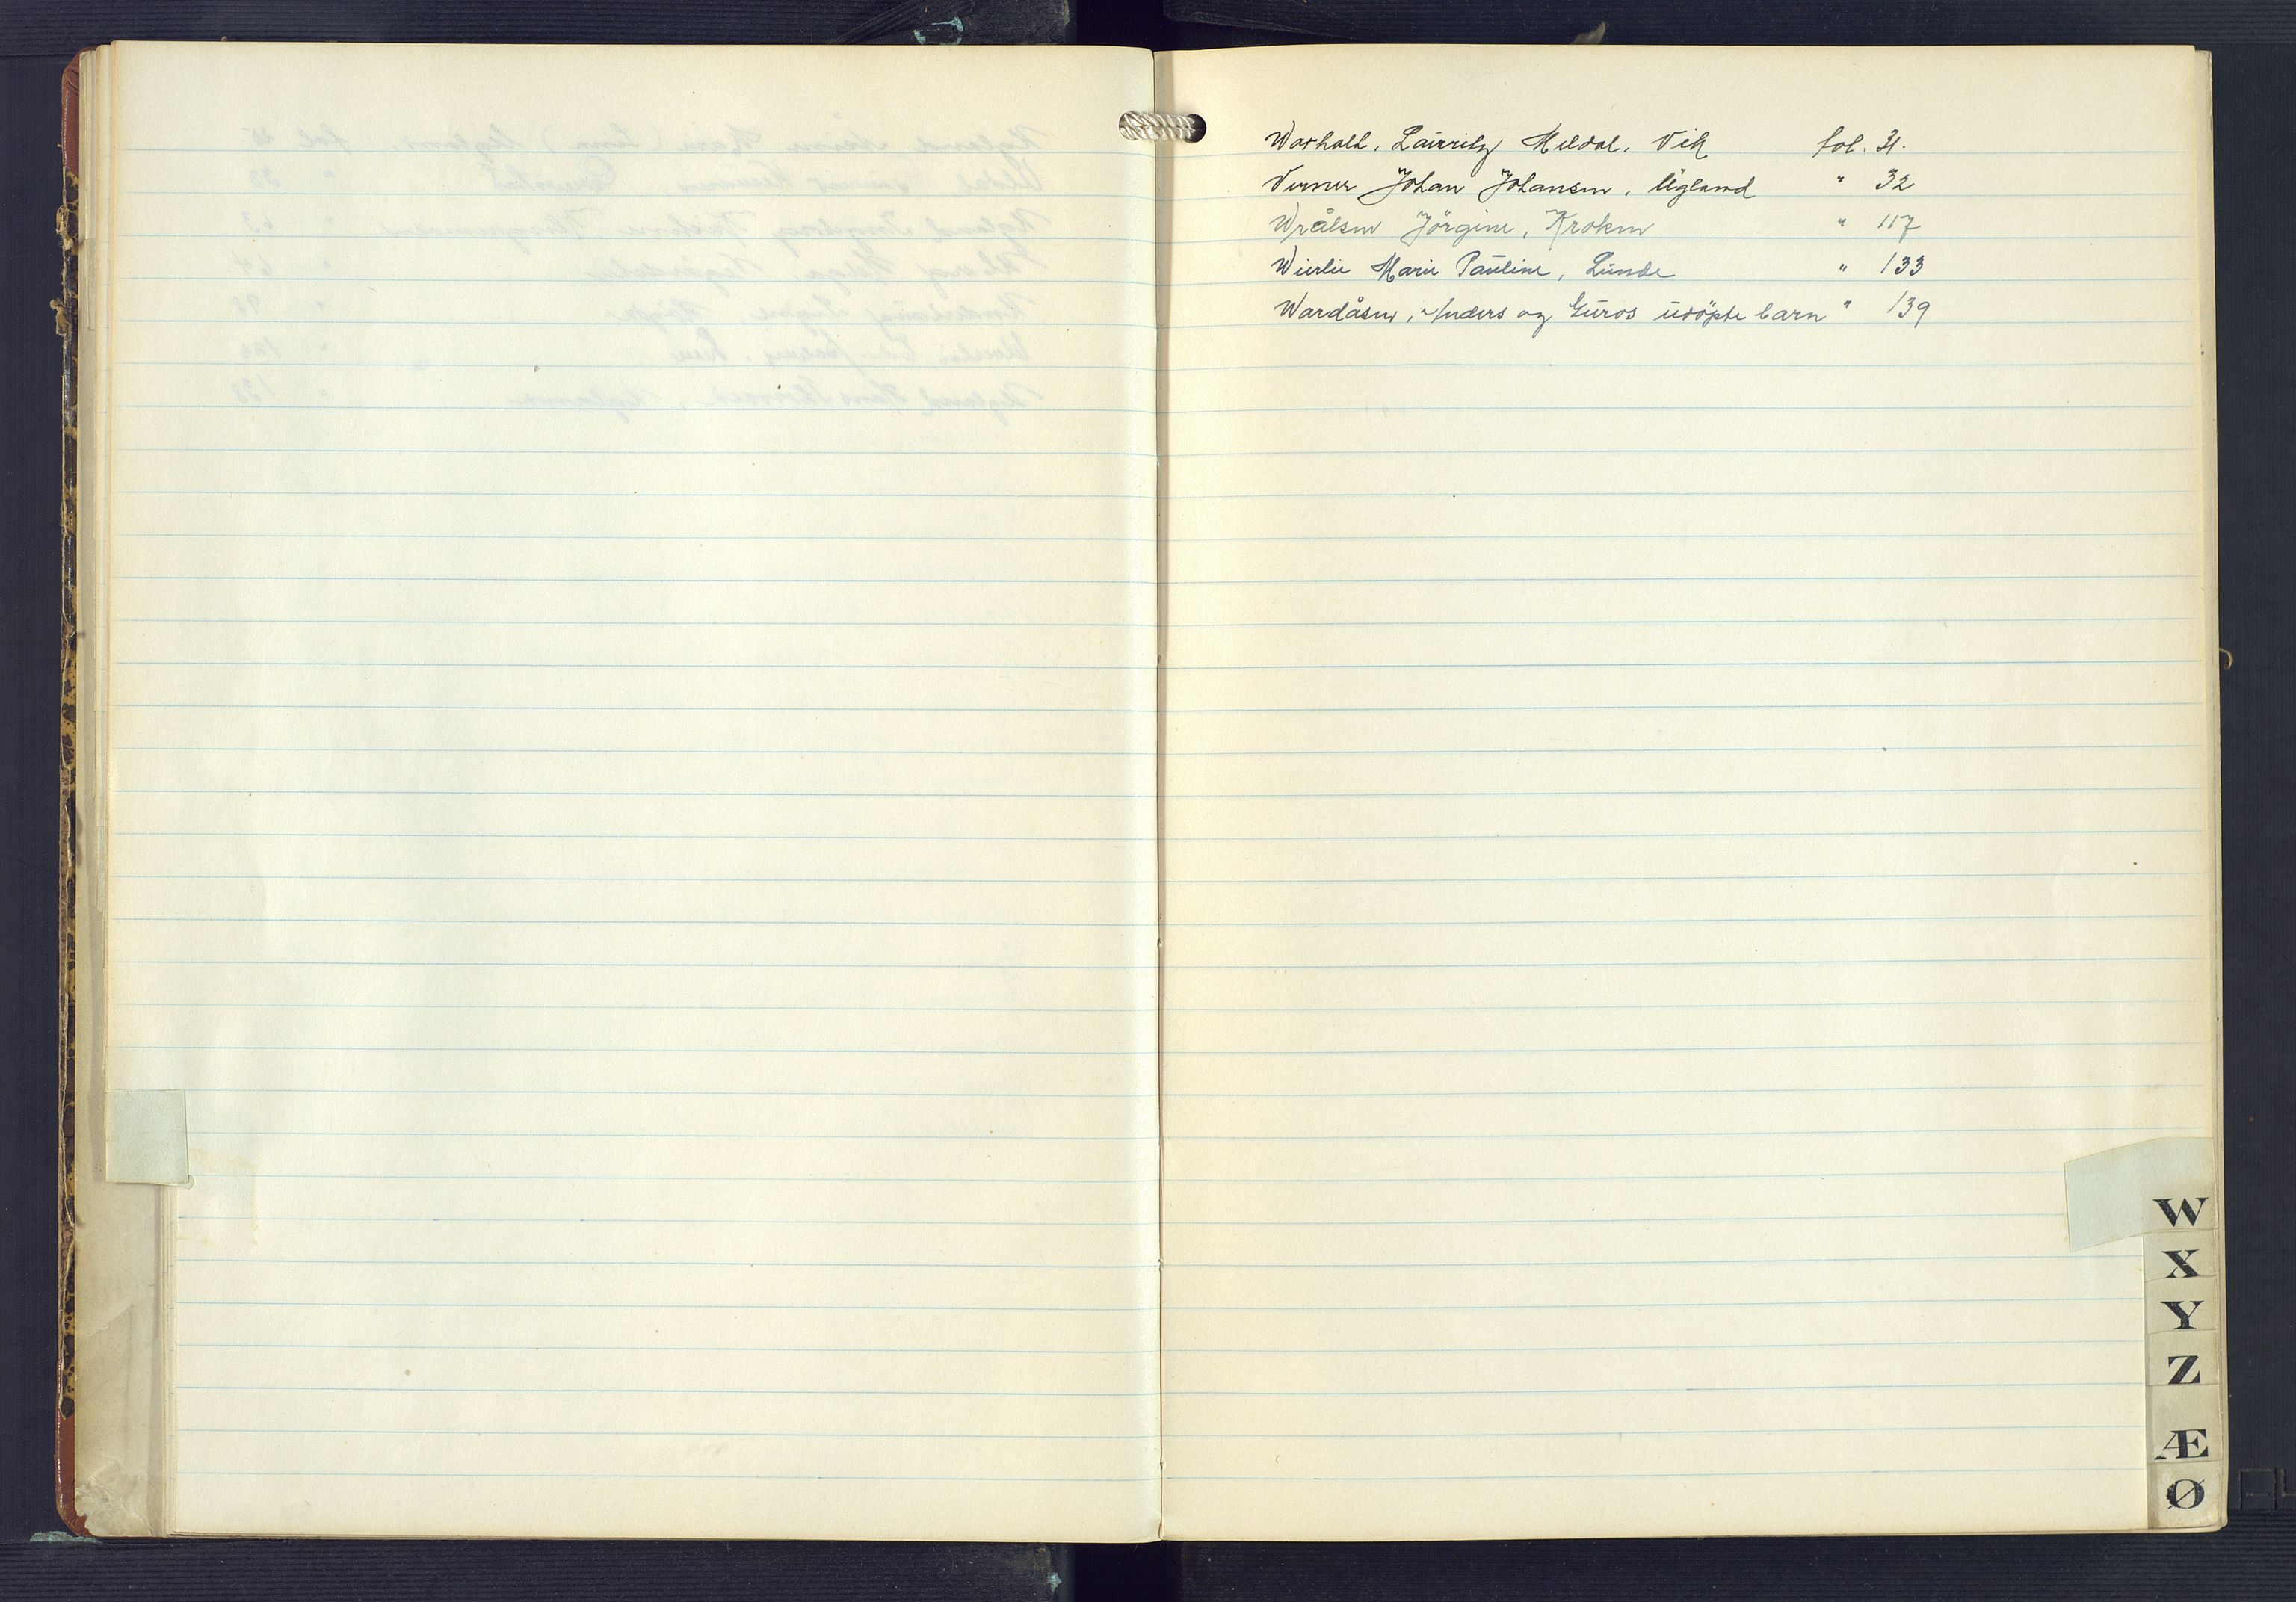 Warholt, Lauritz Meldal. Vik fol. 31.
Verner Johan Johansen, Ugland " 32
Wrålsen Jörgine, Kroken " 117
Wierlie Marie Pauline, Lunde " 133
Wardåsen, Anders og Guros udöpte barn " 139
W
X
Y
Z
Æ
Ø